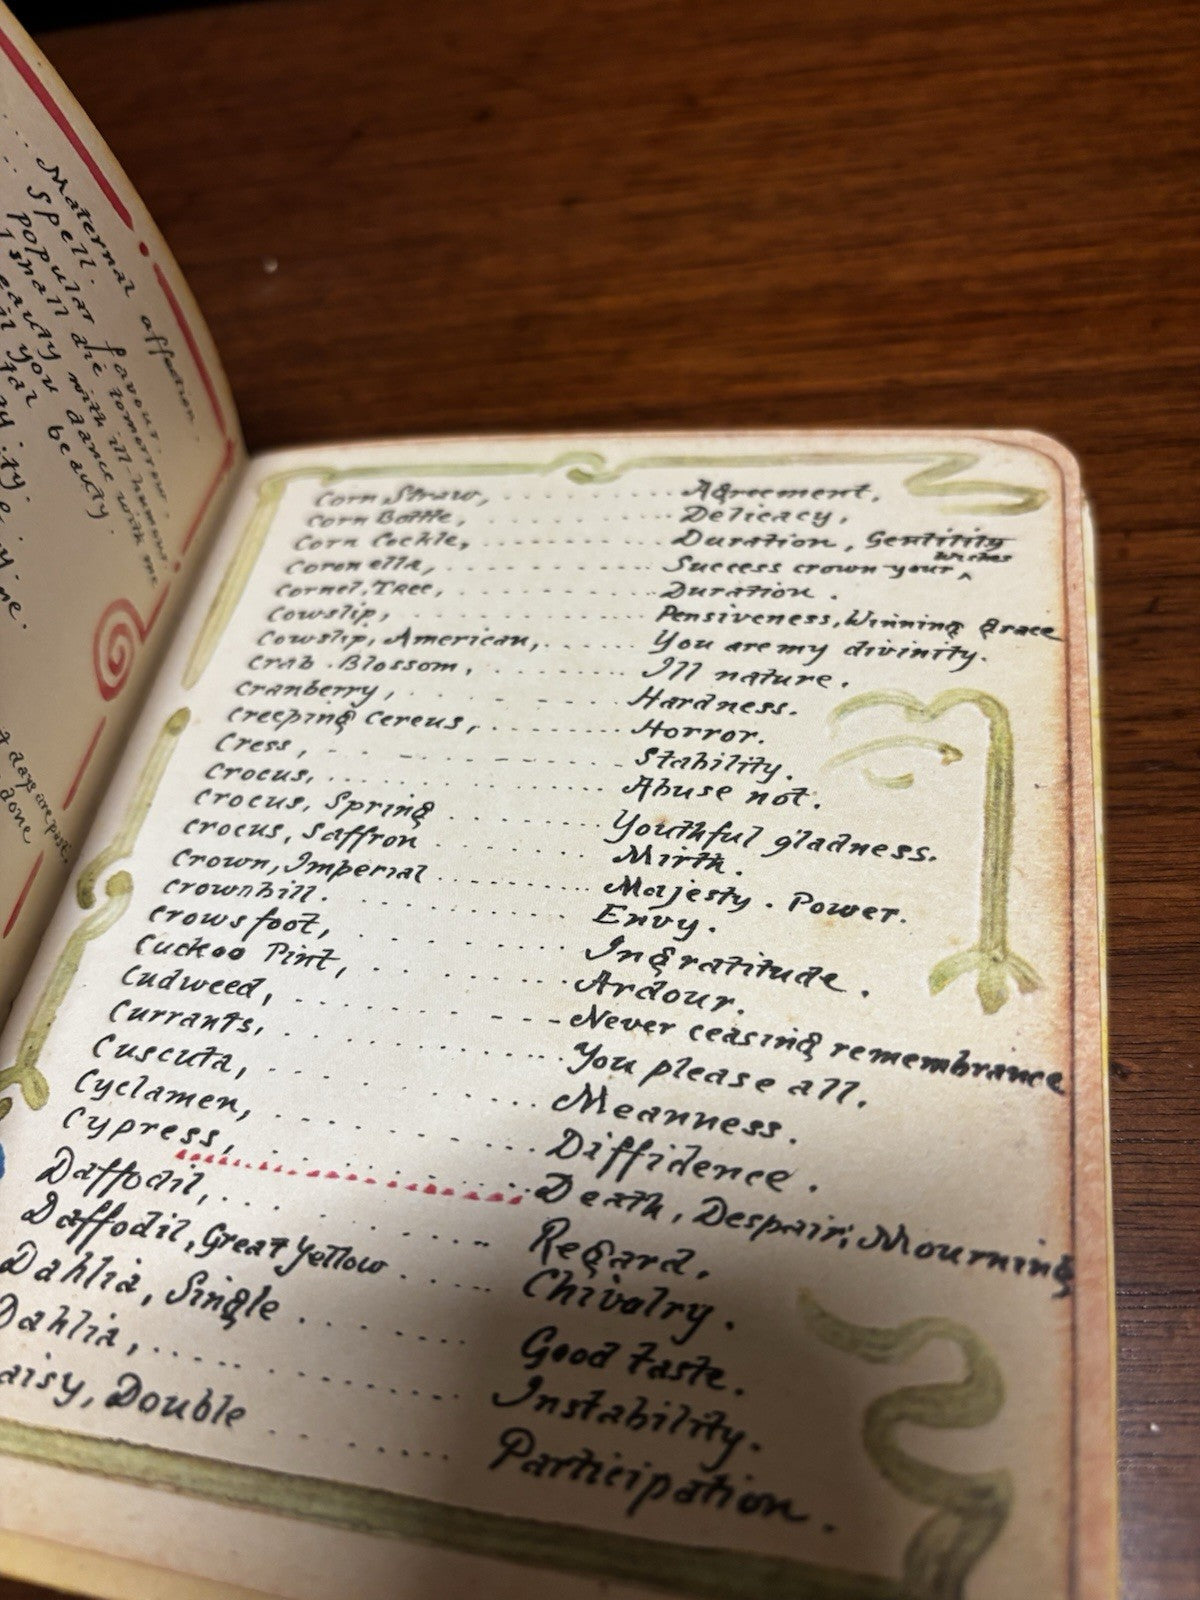 Maternal affection.
Spell.
popular favour.
I shall die tomorrow.
with ill-humour.
you dance with me
beauty.
days are past.
done
Corn Straw, . . . . . . . . . . . . Agreement.
Corn Bottle, . . . . . . . . . . . Delicacy.
Corn Cockle, . . . . . . . . . . . Duration, Gentility
Coronella, . . . . . . . . . . . . Success crown your ^ wishes
Cornel, Tree, . . . . . . . . . . . Duration.
Cowslip, . . . . . . . . . . . . . Pensiveness, Winning grace
Cowslip, American, . . . . . . You are my divinity.
Crab Blossom, . . . . . . . . . Ill nature.
Cranberry, . . . . . . . . . . . . Hardness.
Creeping Cereus, . . . . . . . . Horror.
Cress, . . . . . . . . . . . . . . Stability.
Crocus, . . . . . . . . . . . . . Abuse not.
Crocus, Spring . . . . . . . . . Youthful gladness.
Crocus, Saffron . . . . . . . . . Mirth.
Crown, Imperial . . . . . . . . . Majesty. Power.
Crownbill. . . . . . . . . . . . . Envy.
Crowsfoot, . . . . . . . . . . . Ingratitude.
Cuckoo Pint, . . . . . . . . . . Ardour.
Cudweed, . . . . . . . . . . . . Never ceasing remembrance
Currants, . . . . . . . . . . . . You please all.
Cuscuta, . . . . . . . . . . . . . Meanness.
Cyclamen, . . . . . . . . . . . . Diffidence.
Cypress, . . . . . . . . . . . . . Death, Despair, Mourning
Daffodil, . . . . . . . . . . . . . Regard.
Daffodil, Great Yellow . . . . . Chivalry.
Dahlia, Single . . . . . . . . . . Good taste.
Dahlia, . . . . . . . . . . . . . . Instability.
aisy, Double . . . . . . . . . . Participation.